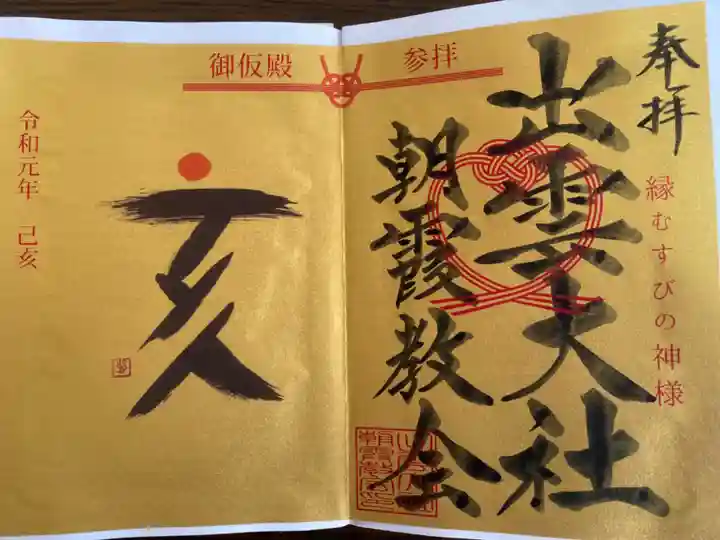 奉拝
縁むすびの神様
出雲大社
朝霞教会
参拝
御仮殿
亥
令和元年 己亥